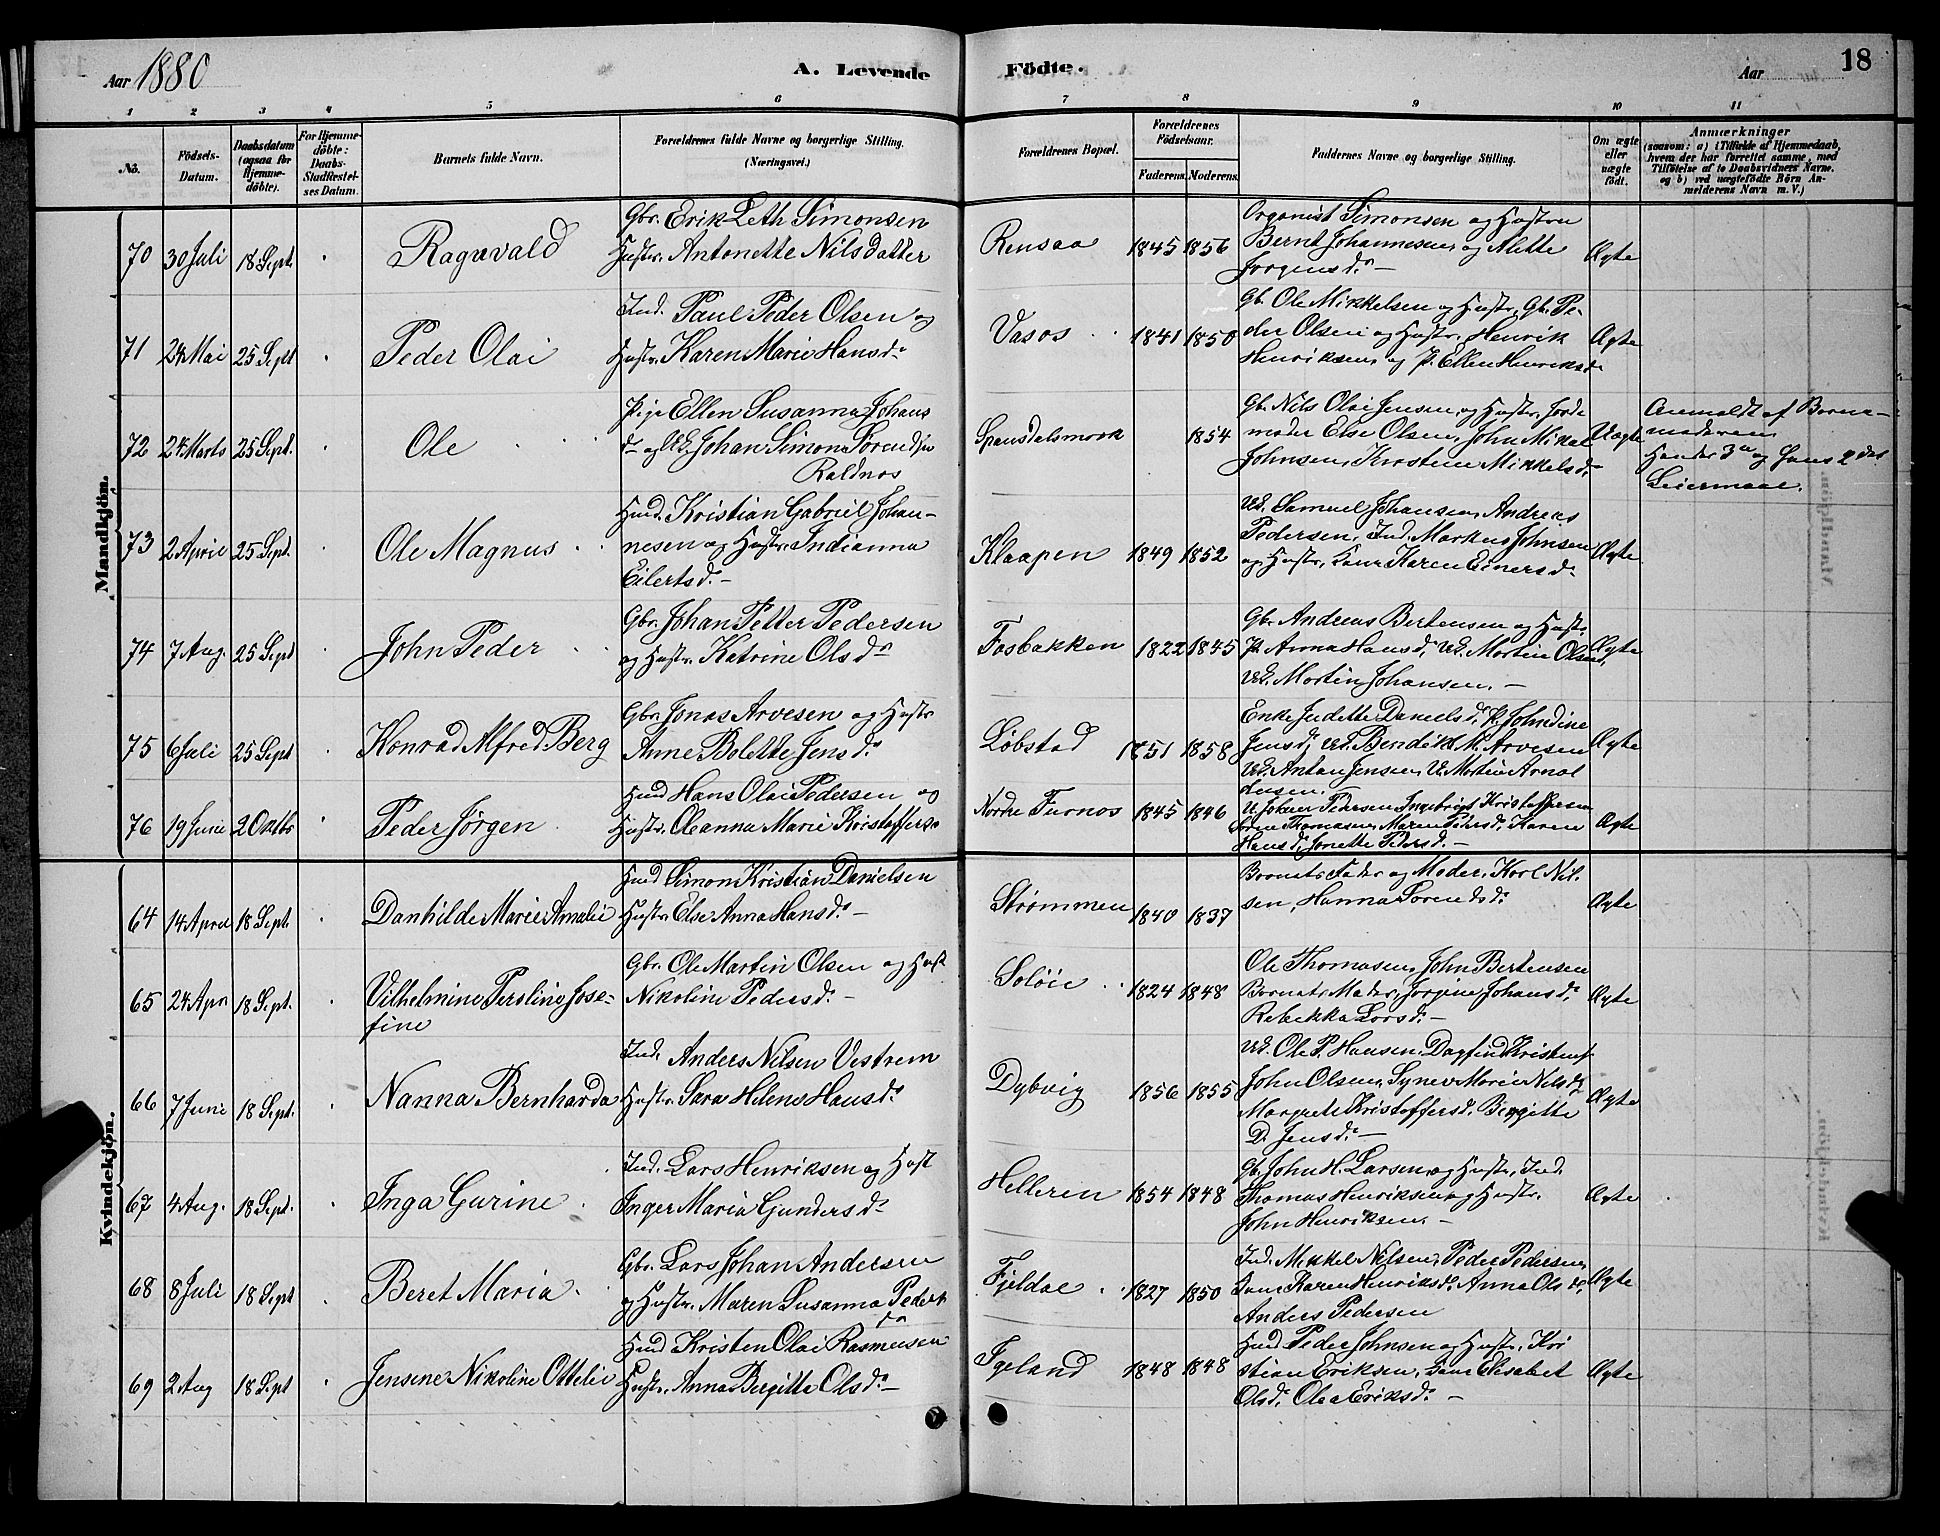 Aar 1880
A. Levende Födte.
Aar
18
1 2 3 4 5 6 7 8 9 10 11
No.
Födsels-Datum.
Daabsdatum (ogsaa for Hjemme-döbte).
For Hjemme-döbte: Daabs-Stadfæstel-ses Datum.
Barnets fulde Navn.
Forældrenes fulde Navne og borgerlige Stilling. (Næringsvei.)
Forældrenes Bopæl.
Forældrenes Födselsaar.
Faderens. Moderens.
Faddernes Navne og borgerlige Stilling.
Om ægte eller uægte födt.
Anmærkninger
(saasom: a) i Tilfælde af Hjemmedaab,
hvem der har forrettet samme, med
Tilföielse af to Daabsvidners Navne.
og b) ved uægtefödte Börn An-
melderens Navn m. V.)
Mandkjön.
70 30 Juli 18 Sept. Ragnvald
Gbr. Erik Leth Simonsen
Hustr. Antonette Nilsdatter
Rensaa 1845 1856
Organist Simonsen og Hustru
Bernt Johannesen og Alette
Jorgensd. –
Ægte
71 24 Mai 25 Sept Peder Olai
Ind. Paul Peder Olsen og
Hustr. Karen Marie Hansd.
Vasos 1841 1850
Gb. Ole Mikkelsen og Hustr. Gb. Pe-
der Olsen og Hustr, Henrik
Henriksen og P. Ellen Henriksd.
Ægte
72 24 Marts 25 Sept. Ole
Pige Ellen Susanna Johans
d. og Johan Simon Sorendsen
Raldnos
Spansdalsmork 1854
Gb. Nils Olai Jensen og Hustr, Jorde
moder Else Olsen, John Mikal
Johnsen, Kirstine Mikkelsd.
Uægte
Anmeldt af Barne-
moderen
Hendes 3die og hans 2det
Leiermaal.
73 2 April 25 Sept. Ole Magnus
Husd. Kristian Gabriel Johan-
nesen og Hustr. Indianna
Eilertsd. –
Klaapen 1849 1852
Samuel Johansen, Andreas
Pedersen, Ind. Markus Johnsen
og Hustr, Karen Einersd.
Ægte
74 7 Aug. 25 Sept John Peder
Gbr. Johan Petter Pedersen
og Hustr. Katrine Olsd.
Fosbakken 1822 1845
Gbr. Andreas Bertensen og Hustr.
P. Anna Hansd, Morten Olsen,
Morten Johansen. –
Ægte
75 6 Juli 25 Sept Konrad Alfred Berg
Gbr. Jonas Arvesen og Hustr
Anne Bolette Jensd.
Løbstad 1851 1858
Enke Judette Danielsd, P. Johndine
Jensd, Bendik M. Arvesen
Antan Jensen, Morten Arnol
dusen. –
Ægte
76 19 Juni 2 Oktbr Peder Jørgen
Husd Hans Olai Pedersen og
Hustr. Oleanna Marie Kristoffersd
Nordre Furnos 1845 1846
Johan Pedersen, Ingebrigt Kristoffersen
Thomasen, Maren Pedersd, Karen
Hansd, Jonette Pedersd. –
Ægte
Kvindekjön.
64 14 April 18 Sept. Danhilde Marie Amalie
Husd Simon Kristian Danielsen
Hustr. Else Anna Hansd. –
Strømmen 1840 1837
Barnets Fader og Moder, Karl Nil-
sen, Hanna Sorendsd.
Ægte
65 24 Apr 18 Sept. Vilhelmine Perstine Jose-
fine
Gbr. Ole Martin Olsen og Hust
Nikoline Pedersd. –
Soløie 1824 1848
Ole Thomasen, John Bertensen
Barnets Moder, Jorgine Johansd,
Rebekka Larsd. –
Ægte
66 7 Juni 18 Sept. Nanna Bernharda
Ind. Anders Nilsen Vestrem
Hustr. Sara Helene Hansd.
Dybvig 1856 1855
Ole P. Hansen, Dagfind Kristens
John Olsen, Synev Marie Nilsd
Margrete Kristoffersd. Bergitte
D. Jensd. –
Ægte
67 4 Aug. 18 Sept. Inga Gurine
Ind. Lars Henriksen og Hust
Inger Maria Gundersd.
Helleren 1854 1848
Gb. John H. Larsen og Hustr, Ind.
Thomas Henriksen og Hustr.
John Henriksen. –
Ægte
68 8 Juli 18 Sept Beret Maria
Gbr. Lars Johan Andersen
og Hustr. Maren Susanna Peders
Fjeldal 1827 1850
Ind. Mikkel Nilsen, Peder Pedersen,
Karen Henriksd. Anna Olsd,
Anders Pedersen
Ægte
69 2 Aug 18 Sept Jensine Nikoline Ottelie
Husd Kristen Olai Rasmussen
Hustr. Anna Bergitte Olsd. –
Igeland 1848 1848
Husd Peder Johnsen og Hustr, Kri
stian Eriksen, Elisabet
Olsd, Olea Eriksd. –
Ægte